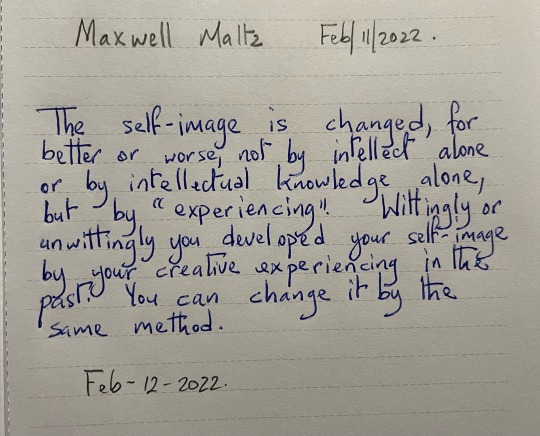 Maxwell Maltz Feb/11/2022.
The self-image is changed, for
better or worse, not by intellect alone
or by intellectual knowledge alone,
but by "experiencing". Wittingly or
unwittingly you developed your self-image
by your creative experiencing in the
past. You can change it by the
same method.
Feb-12-2022.